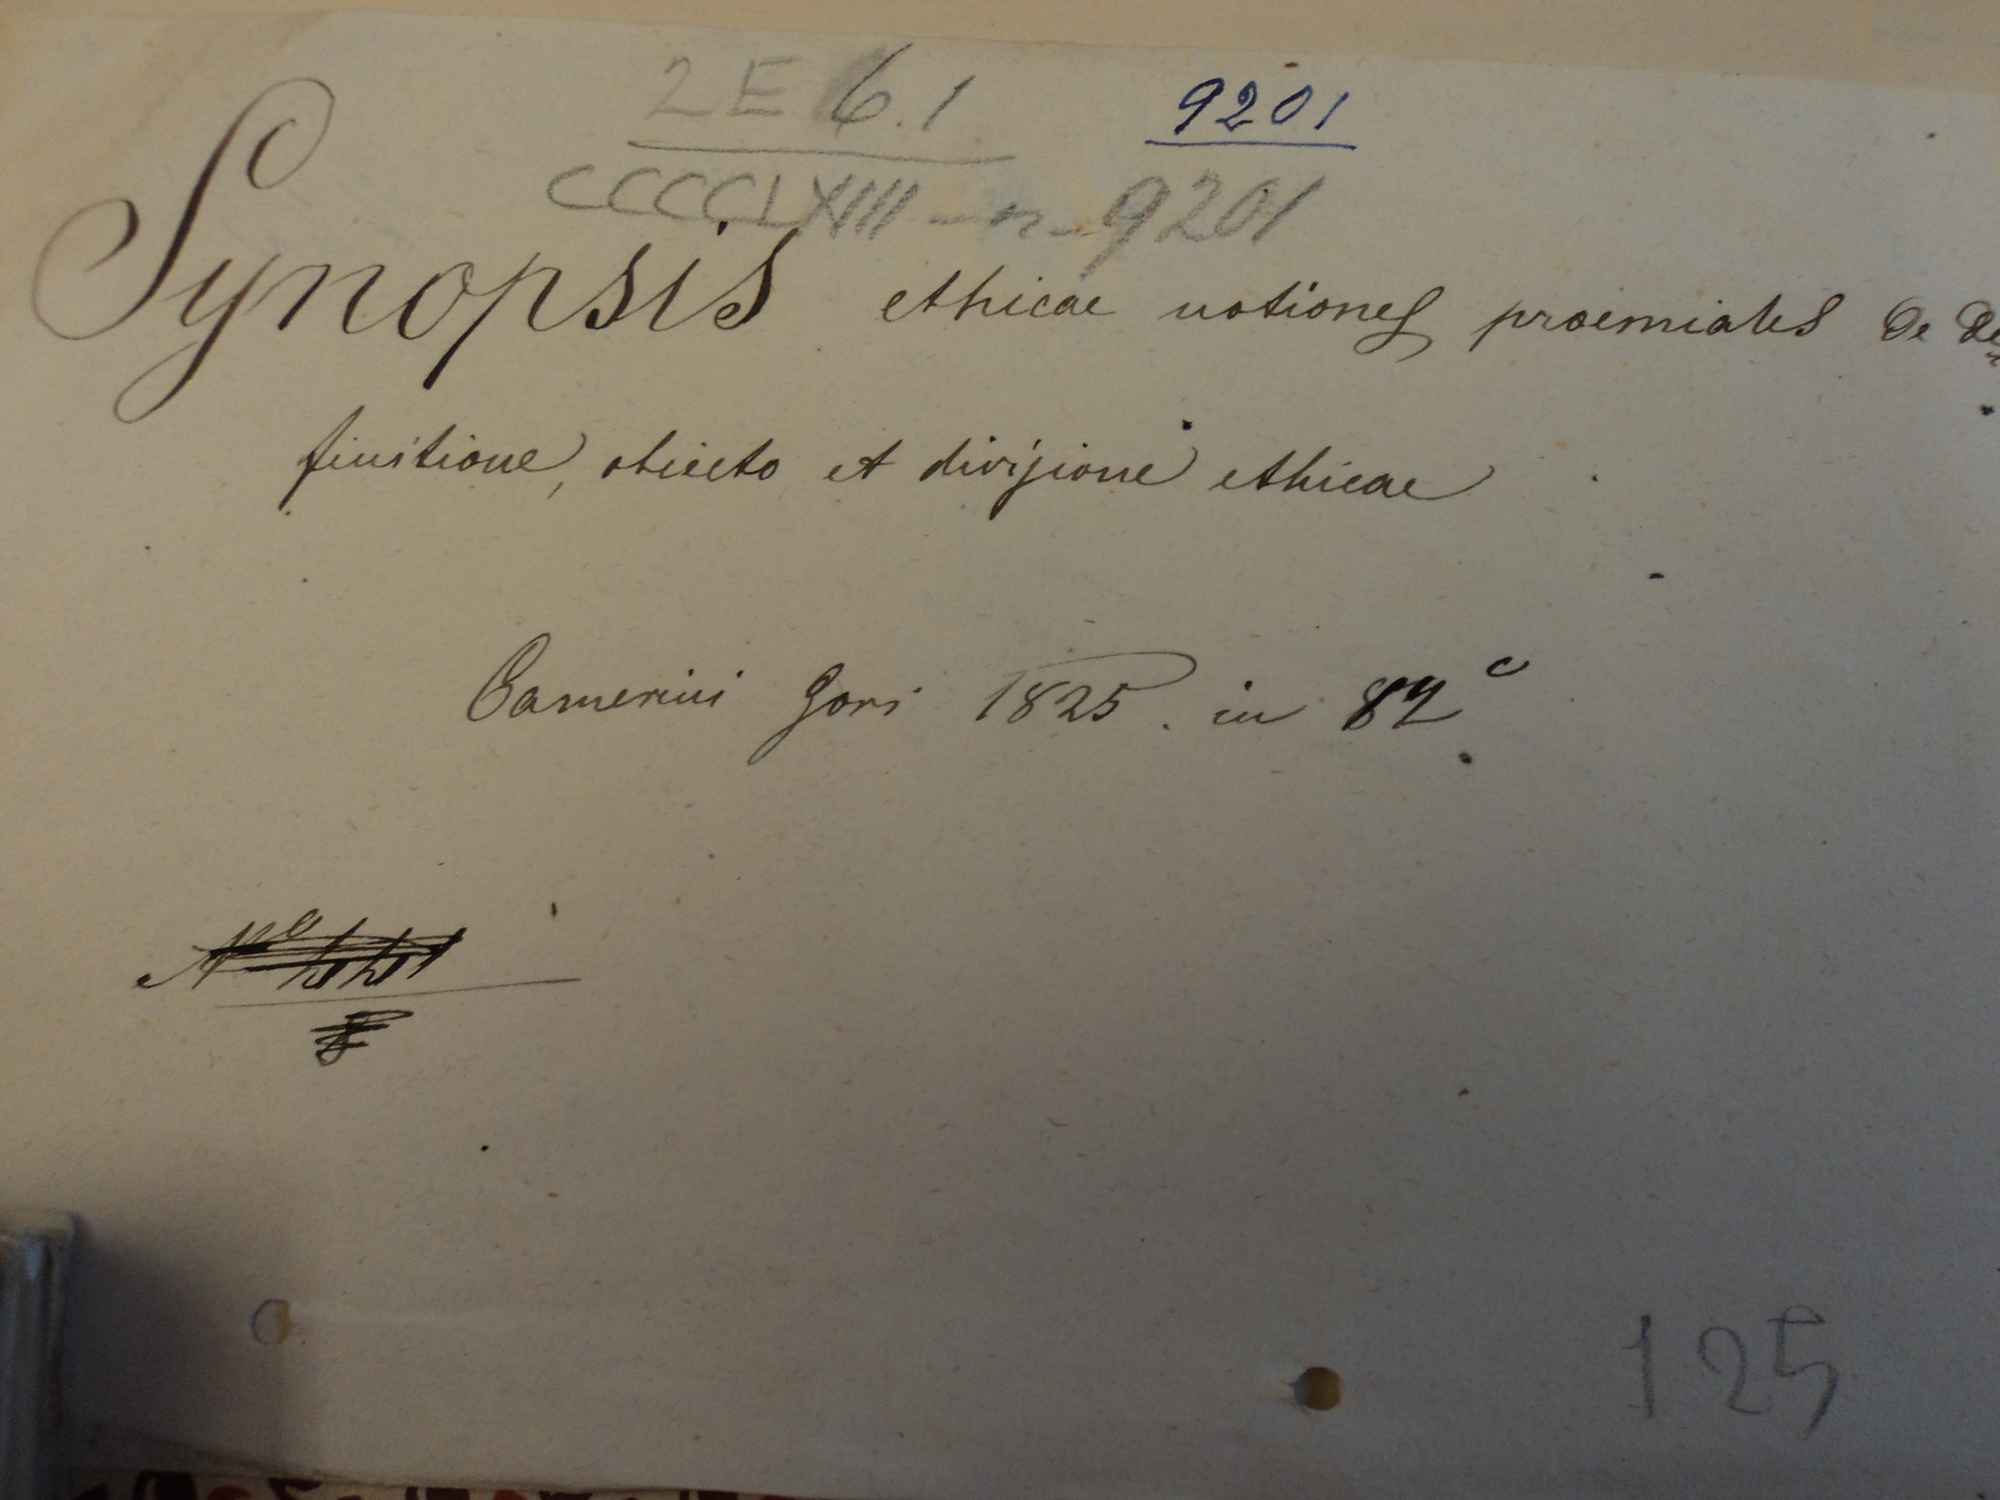 2E 6.1 9201
CCCCLXIIII - n - 9201
Synopsis ethicae notiones proemiales de de
finitione, obiecto et divisione ethicae
Camerini Gori 1825. in 8
125